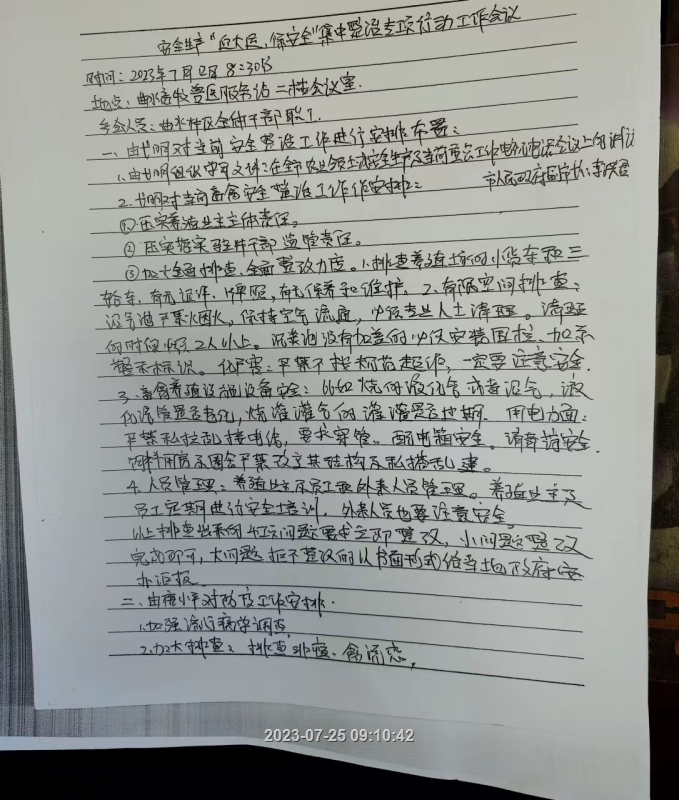 安全生产"迎大运,保安全"集中整治专项行动工作会议
时间:2023年7月 日8:30分
地点: 牧兽医服务站二楼会议室.
参会人员: 全体干部职工
一、由 对当前安全整治工作进行安排布署:
1.由 组织学习文件:在全市农业领域安全生产及当前重点工作电视电话会议上的讲话
市人民政府副市长:李
2. 对当前畜禽安全整治工作作安排:
①压实养殖业主主体责任。
②压实 干部监管责任。
③加大全面排查、全面整改力度。1.排查养殖场的小货车和三
轮车,有无证件、牌照,有无保养和维护。2.有限空间排查:
沼气池严禁烟火,保持空气流通,必须专业人士清理。清理
的时候 2人以上。沉粪池没有加盖的必须安装围栏,加示
警示标识。化粪 :严禁不按规范操作,一定要注意安全.
3.畜禽养殖设施设备安全: 烧的液化气或者沼气,液
化 管是否老化,烧液灌气的灌灌是否过期.用电方面:
严禁私拉乱接电线,要求穿管。配电箱安全。消毒药安全.
饲料用房及圈舍严禁改变其结构及私搭乱建。
4.人员管理:养殖业主及员工和外来人员管理。养殖业主及
员工定期进行安全培训,外来人员也要注意安全。
以上排查出来的 问题要求立即整改,小问题整改
完成即可,大问题拒不整改的以书面形式给当地政府安
办汇报.
二、由 小平对防疫工作安排.
1.加强流行病学调查
2.加大排查:排查非瘟、禽流感,
2023-07-25 09:10:42